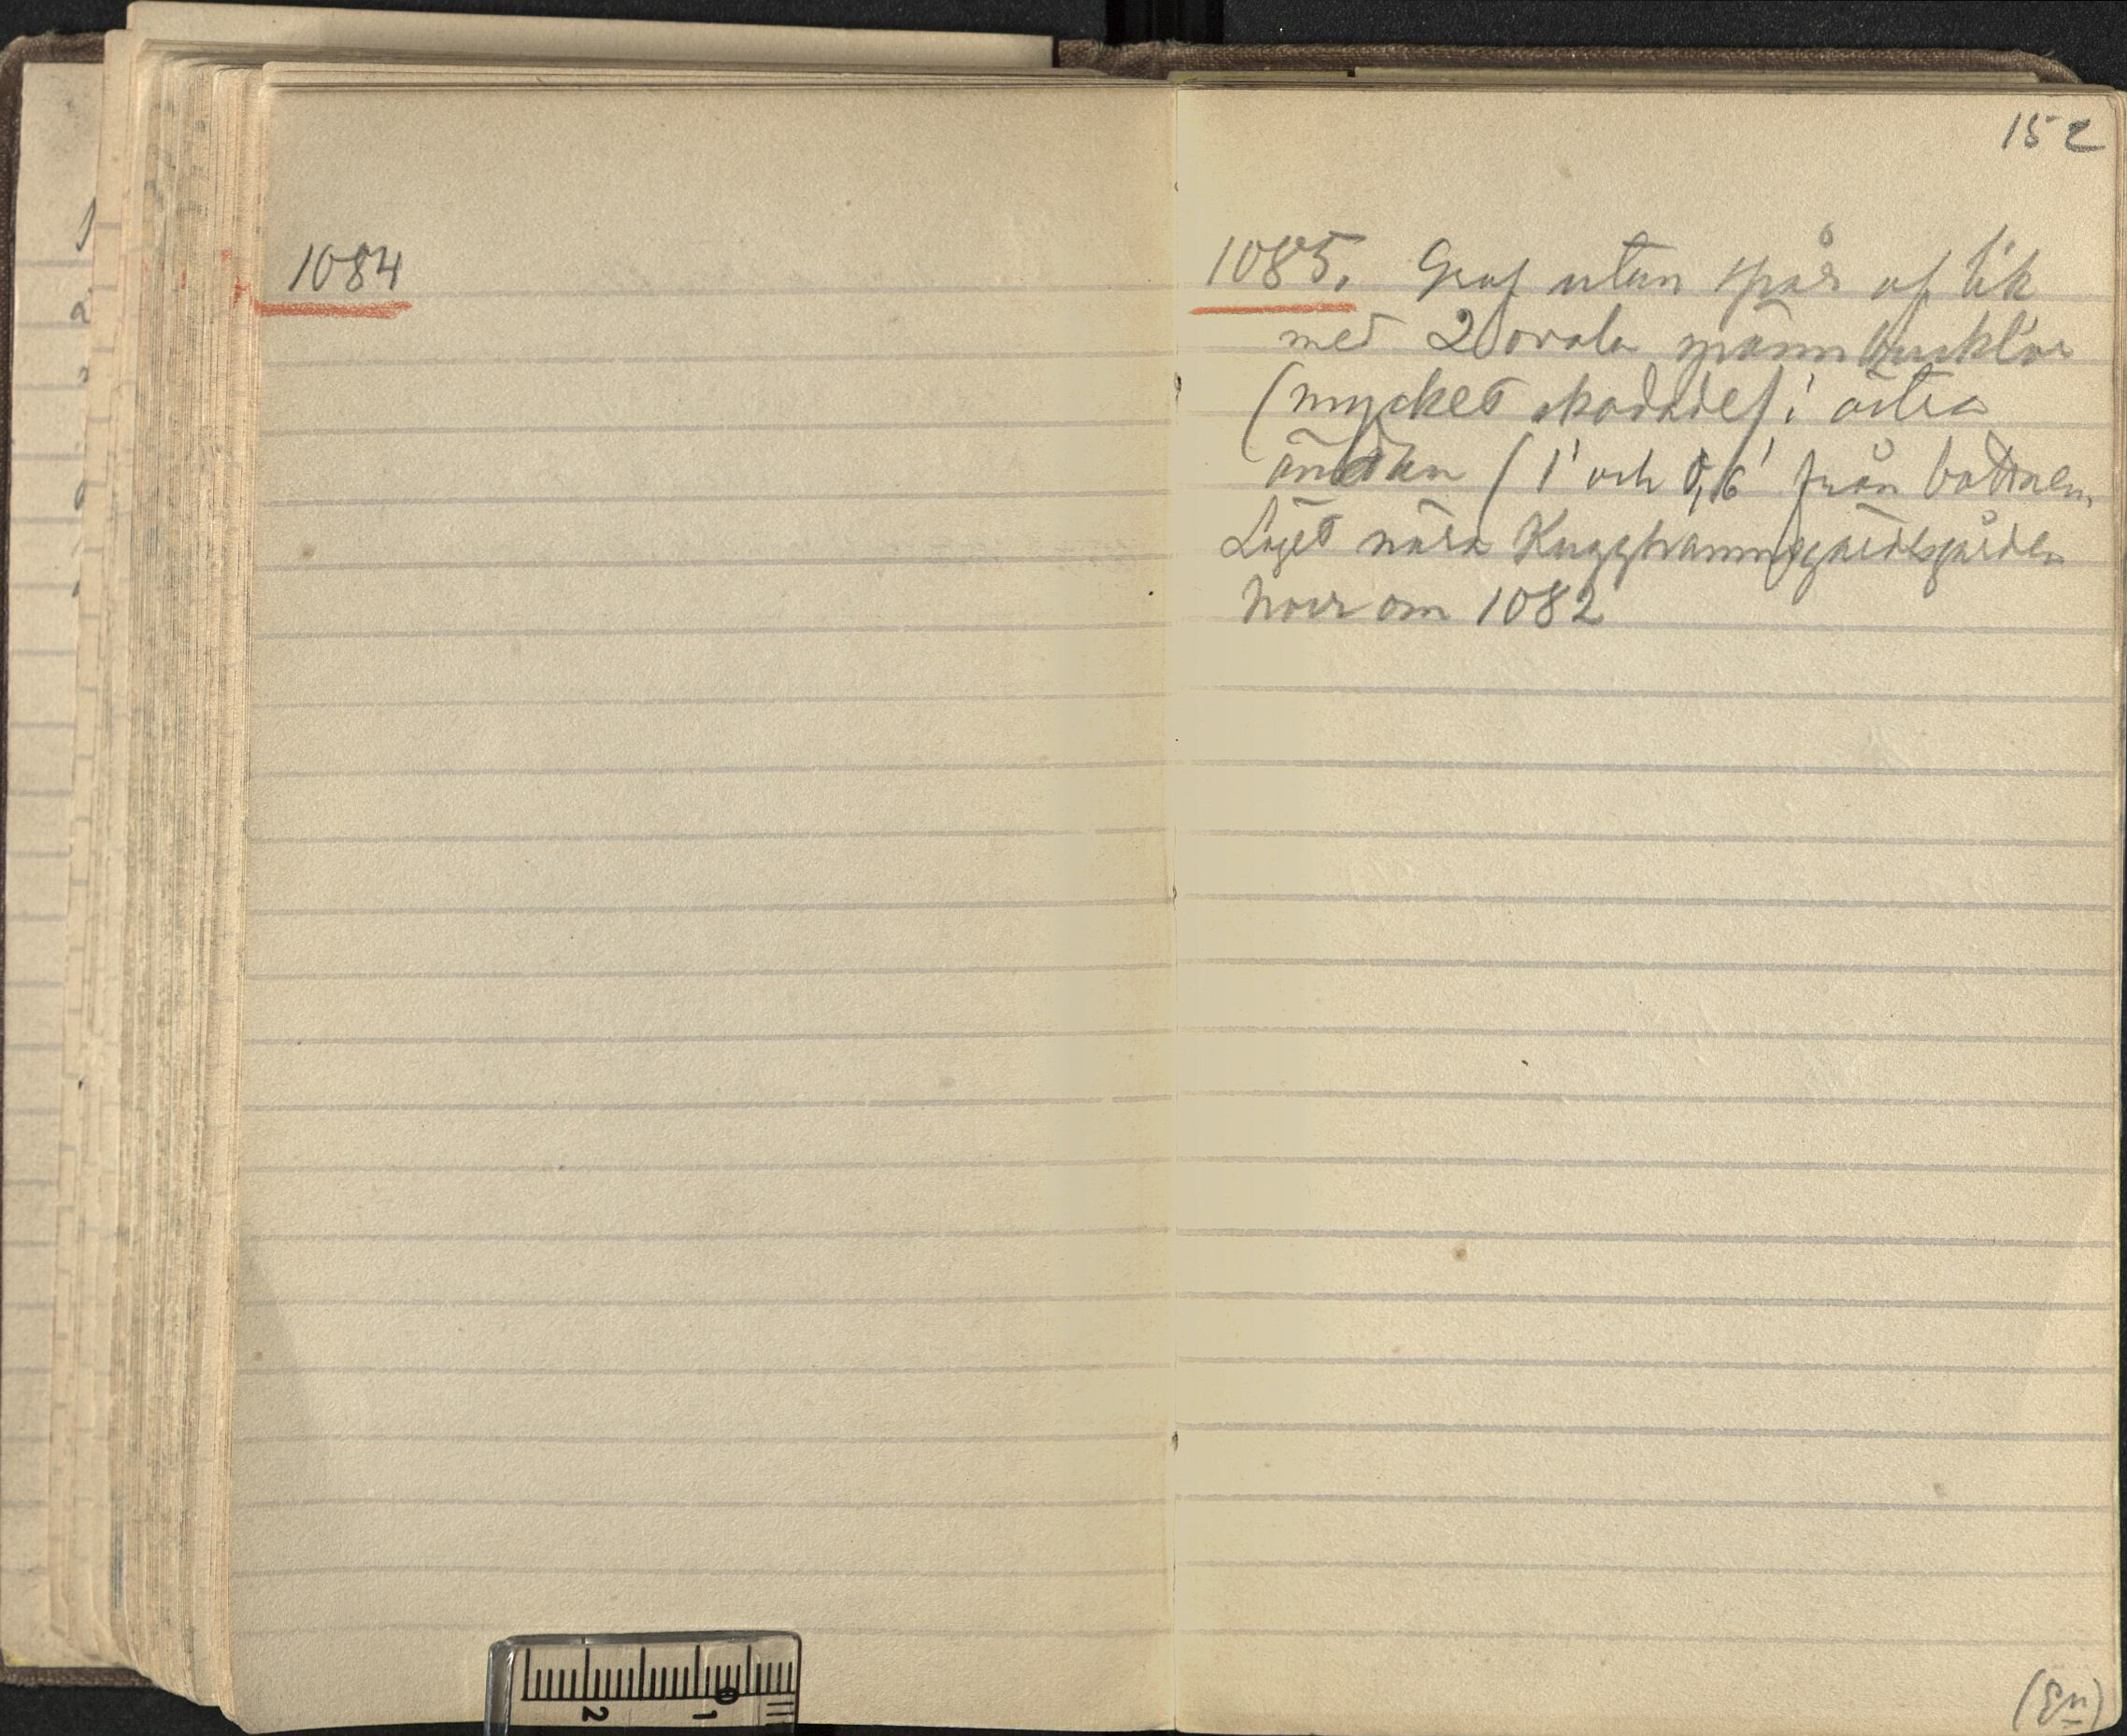 1084
152
1085. Graf utan spår af lik
med 2 ovala spännbucklor
(mycket skadade) i östra
ändan (1' och 0,6' från bottnen.
Läget nära Kugghamnsgärdsgården
Norr om 1082
(En)
2
1
0